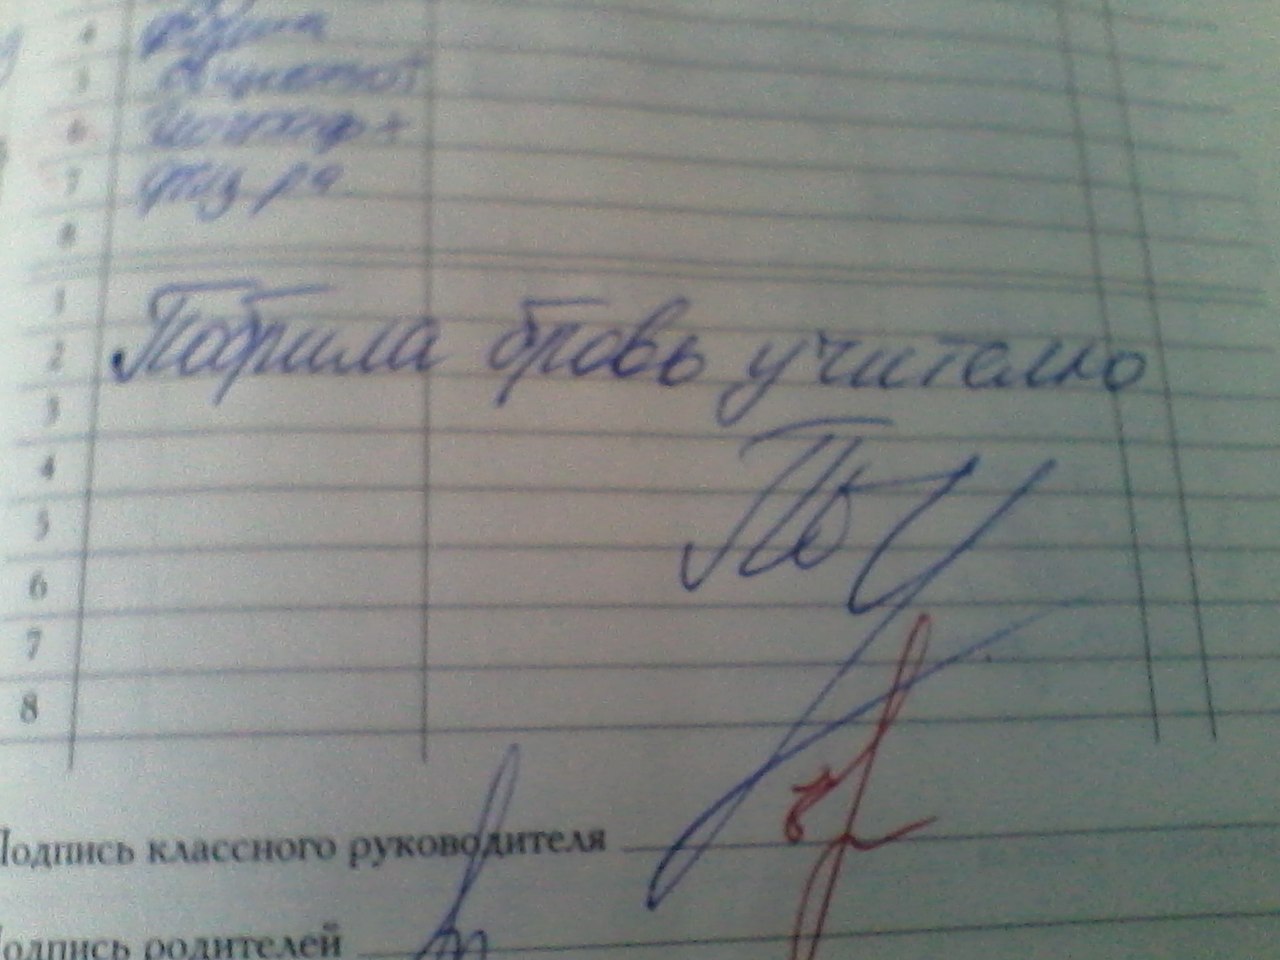 4
5
6
7 физ ра
8
1
2 Побрила бровь учителю
3
4
5
6
7
8
Подпись классного руководителя
Подпись родителей